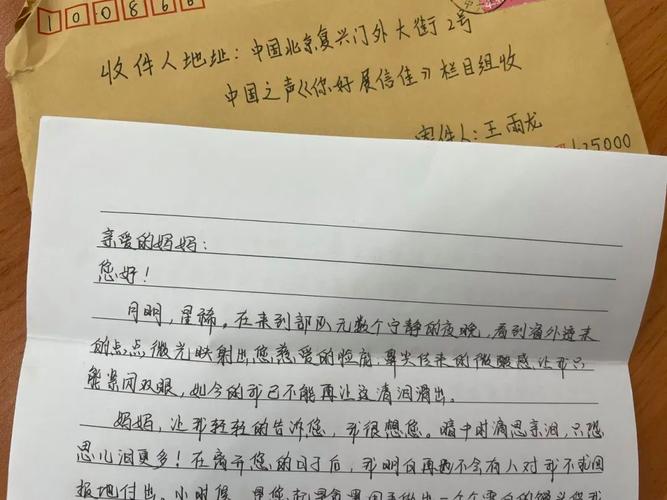 100866
收件人地址:中国北京复兴门外大街2号
中国之声《你好展信佳》栏目组收
寄件人:王雨龙
125000
亲爱的妈妈:
您好!
月明,星稀。在来到部队无数个宁静的夜晚,看到窗外透来
的点点微光映射出您慈爱的脸庞,鼻尖传来的微酸感让我只
能紧闭双眼,如今的我已不能再让这清泪滑出。
妈妈,让我轻轻的告诉您,我很想您。暗中时滴思亲泪,只恐
思儿泪更多!在离开您的日子后,我明白再也不会有人对我不求回
报地付出。小时候,是您